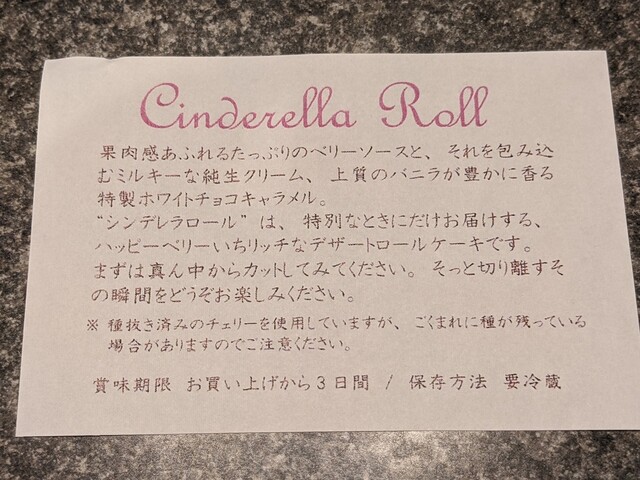 Cinderella Roll
果肉感あふれるたっぷりのベリーソースと、それを包み込
むミルキーな純生クリーム、上質のバニラが豊かに香る
特製ホワイトチョコキャラメル。
“シンデレラロール”は、特別なときにだけお届けする、
ハッピーベリーいちリッチなデザートロールケーキです。
まずは真ん中からカットしてみてください。そっと切り離すそ
の瞬間をどうぞお楽しみください。
※ 種抜き済みのチェリーを使用していますが、ごくまれに種が残っている
場合がありますのでご注意ください。
賞味期限 お買い上げから3日間 / 保存方法 要冷蔵